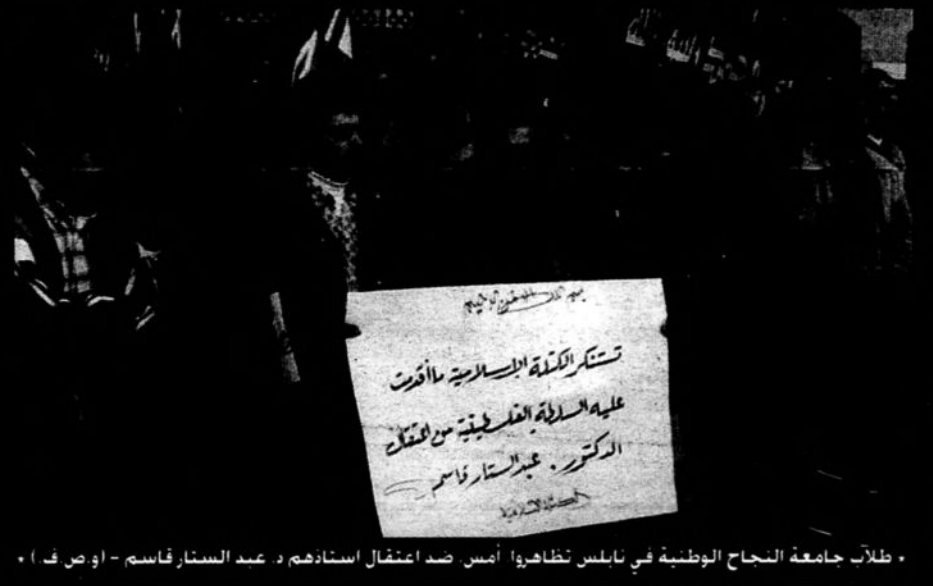 بسم الله الرحمن الرحيم
تستنكر الكتلة الإسلامية ما أقدمت
عليه السلطة الفلسطينية من اعتقال
الدكتور. عبد الستار قاسم
الكتلة الإسلامية
* طلاب جامعة النجاح الوطنية في نابلس تظاهروا، أمس، ضد اعتقال استاذهم د. عبد الستار قاسم – (و.ص.ف.) *